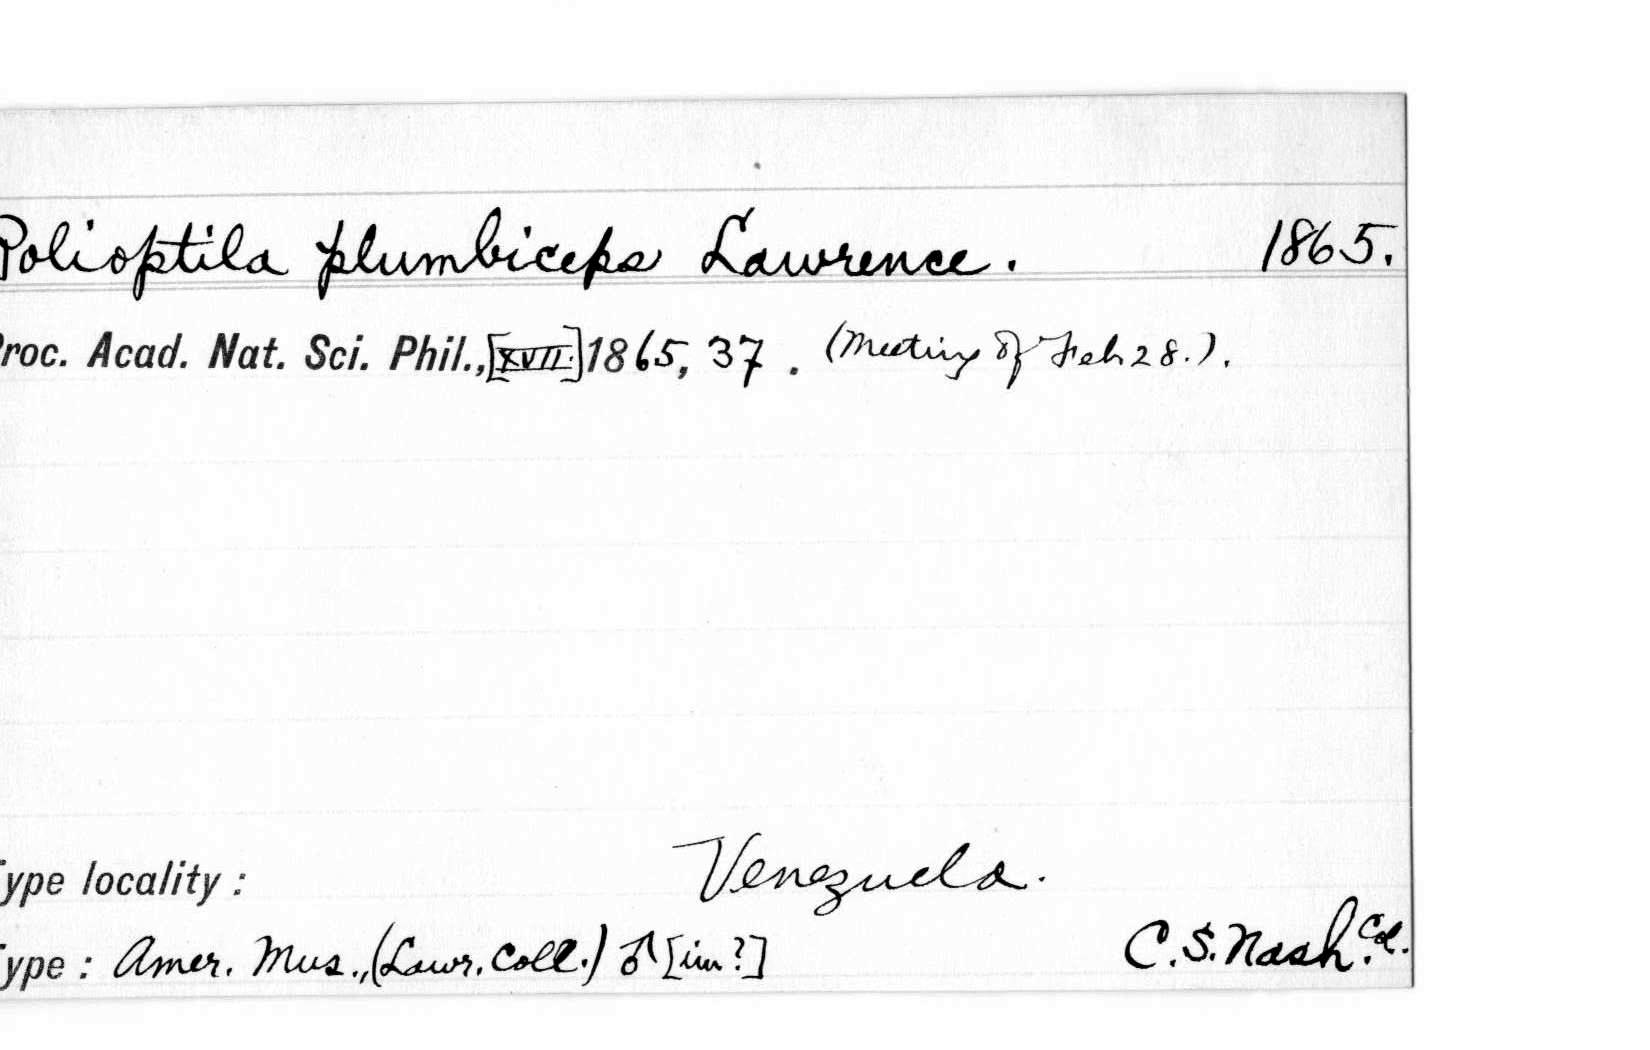 Polioptila plumbiceps Lawrence. 1865.
Proc. Acad. Nat. Sci. Phil., [XVII.] 1865, 37. (Meeting of Feb 28.).
Type locality: Venezuela.
Type: Amer. Mus., (Lawr. Coll.) ♂ [im?] C. S. Nash. Col.